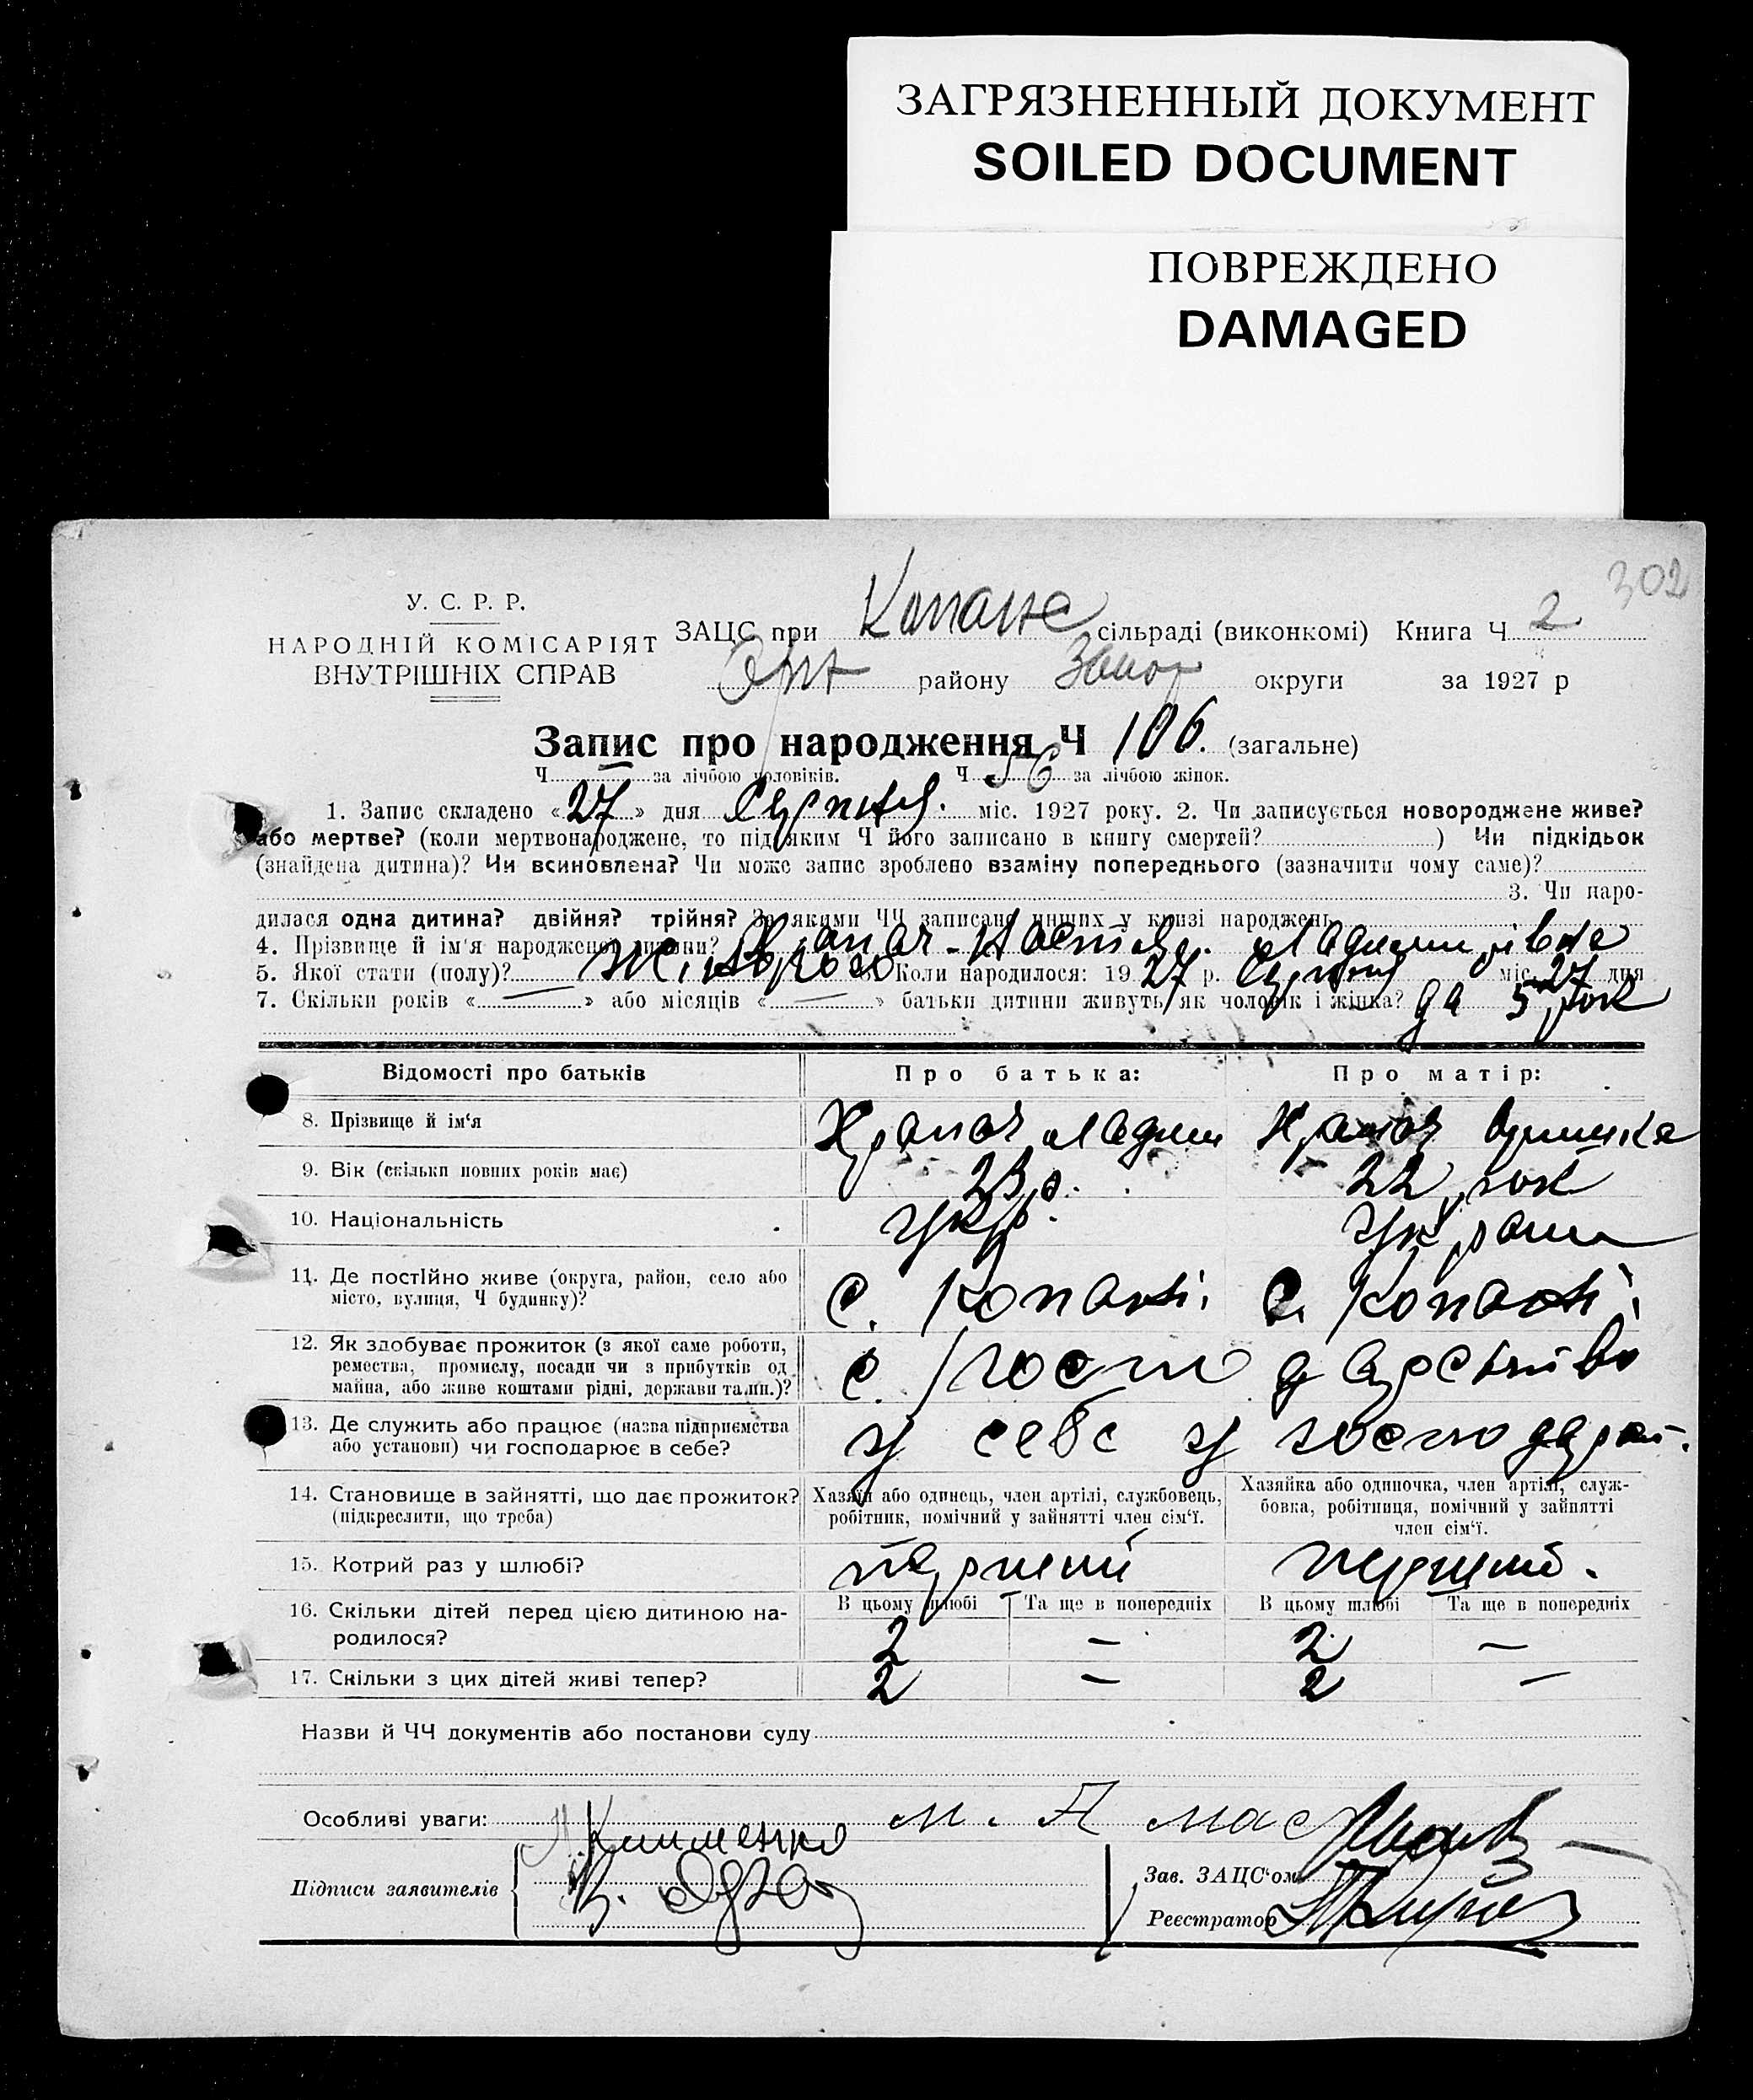 ЗАГРЯЗНЕННЫЙ ДОКУМЕНТ
SOILED DOCUMENT
ПОВРЕЖДЕНО
DAMAGED
302
У. С. Р. Р.
НАРОДНІЙ КОМІСАРІЯТ
ВНУТРІШНІХ СПРАВ
ЗАЦС при Копане сільраді (виконкомі) Книга Ч 2
району Запор округи за 1927 р
Запис про народження Ч 106. (загальне)
Ч за лічбою чоловіків. Ч 56 за лічбою жінок.
1. Запис складено «27» дня Серпня. міс. 1927 року. 2. Чи записується новороджене живе?
або мертве? (коли мертвонароджене, то під яким Ч його записано в книгу смертей? ) Чи підкідьок
(знайдена дитина)? Чи всиновлена? Чи може запис зроблено взаміну попереднього (зазначити чому саме)?
3. Чи наро-
дилася одна дитина? двійня? трійня? За якими ЧЧ записано инших у книзі народжень
4. Прізвище й ім'я народженої дитини?
5. Якої стати (полу)? Коли народилося: 1927 р. Серпня міс. 27 дня
7. Скільки років « — » або місяців « — » батьки дитини живуть як чоловік і жінка? 5 рок
Відомості про батьків
Про батька:
Про матір:
8. Прізвище й ім'я
9. Вік (скільки повних років має) 23 р. 22 рок
10. Національність укр. украин
11. Де постійно живе (округа, район, село або
місто, вулиця, Ч будинку)?
с. Копані с. Копані
12. Як здобуває прожиток (з якої саме роботи,
ремества, промислу, посади чи з прибутків од
майна, або живе коштами рідні, держави та.ин.)?
с. господарство
13. Де служить або працює (назва підприємства
або установи) чи господарює в себе?
у себе у господар.
14. Становище в зайнятті, що дає прожиток?
(підкреслити, що треба)
Хазяїн або одинець, член артілі, службовець,
робітник, помічний у зайнятті член сім'ї.
Хазяйка або одиночка, член артілі, служ-
бовка, робітниця, помічний у зайнятті
член сім'ї.
15. Котрий раз у шлюбі? перший перший.
16. Скільки дітей перед цією дитиною на-
родилося?
В цьому шлюбі Та ще в попередніх В цьому шлюбі Та ще в попередніх
2 — 2 —
17. Скільки з цих дітей живі тепер? 2 — 2 —
Назви й ЧЧ документів або постанови суду
Особливі уваги:
Клименко
Підписи заявителів
Зав. ЗАЦС'ом
Реєстратор